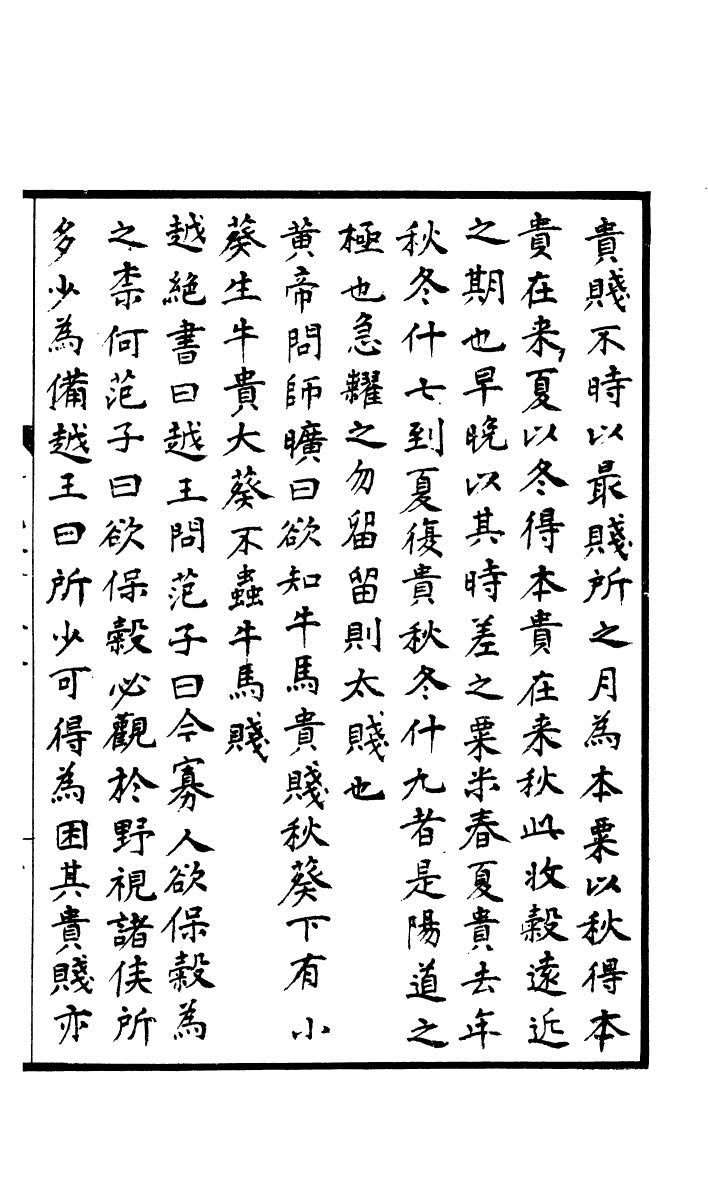 貴賤不時以最賤所之月為本粟以秋得本
貴在来夏以冬得本貴在来秋此收穀遠近
之期也早晚以其時差之粟米春夏貴去年
秋冬什七到夏復貴秋冬什九者是陽道之
極也急糶之勿留留則太賤也
黄帝問師曠曰欲知牛馬貴賤秋葵下有小
葵生牛貴大葵不蟲牛馬賤
越絶書曰越王問范子曰今寡人欲保穀為
之柰何范子曰欲保穀必觀於野視諸侯所
多少為備越王曰所少可得為困其貴賤亦